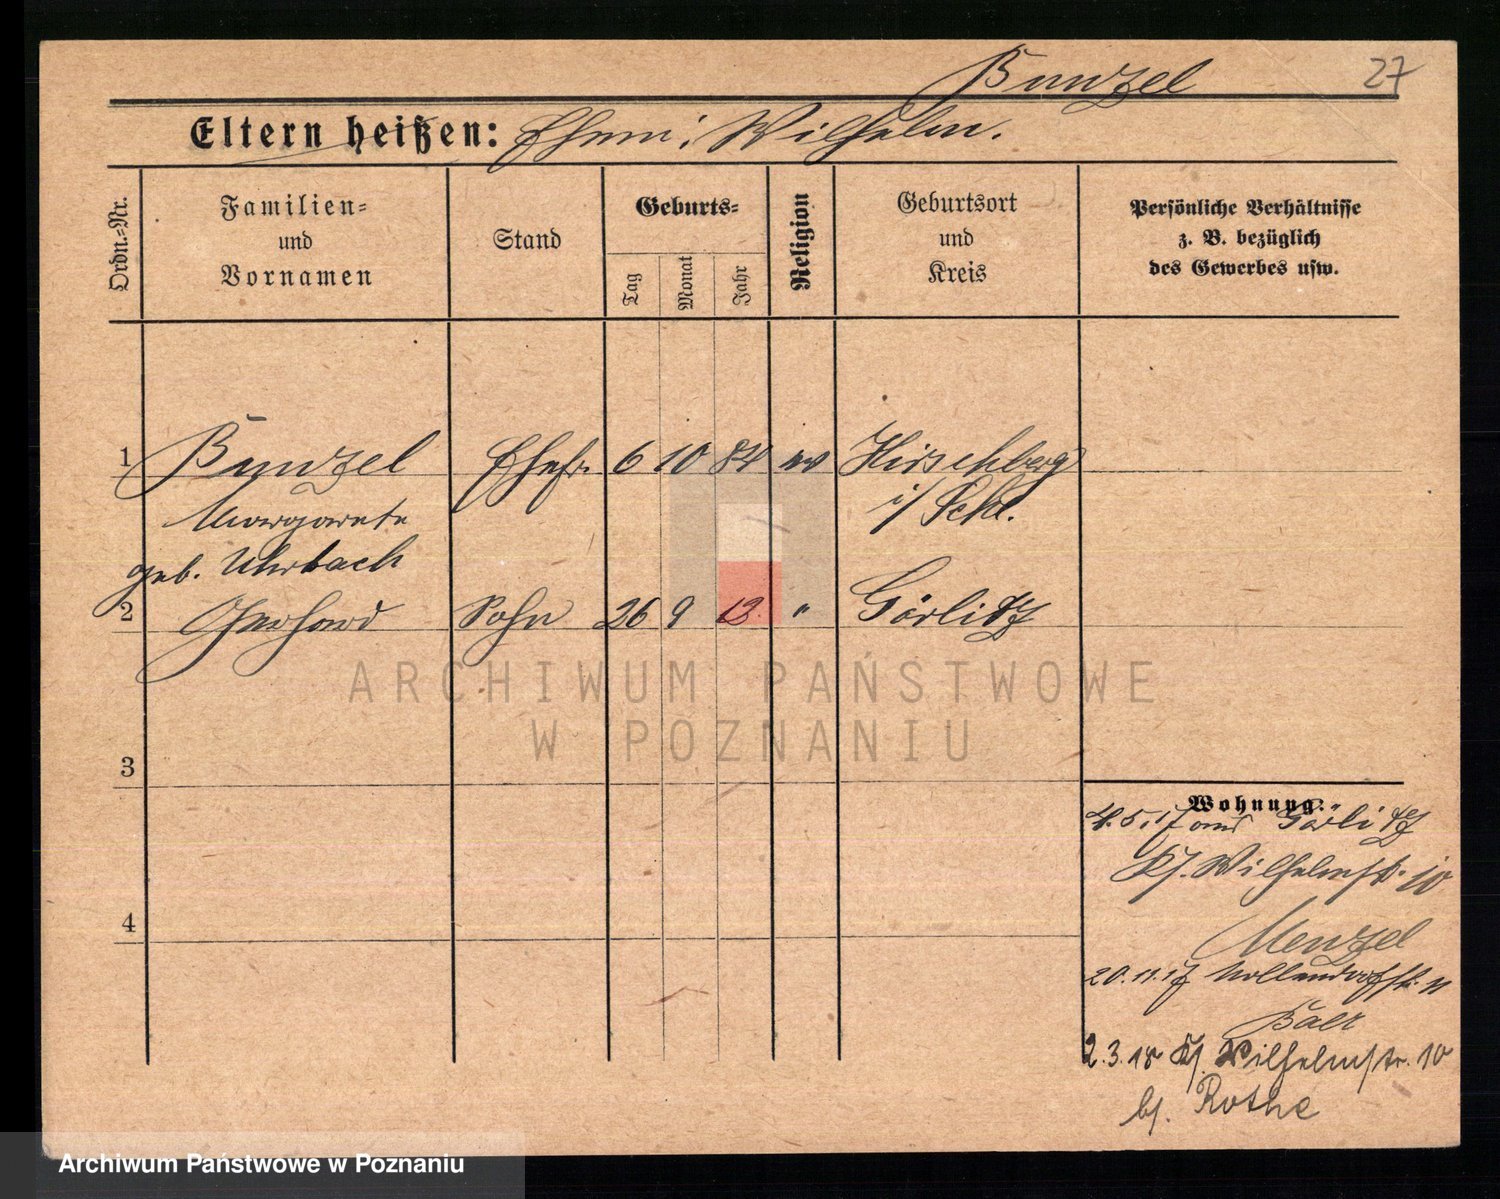 Bunzel 27
Eltern heißen: Ehem: Wilhelm.
Ordn.=Nr.
Familien=
und
Vornamen
Stand
Geburts=
Tag
Monat
Jahr
Religion
Geburtsort
und
Kreis
Persönliche Verhältnisse
z. B. bezüglich
des Gewerbes usw.
1 Bunzel Ehefr. 6 10 84 ev Hirschberg
Margarete i/Schl.
geb. Uhrbach
2 Gerhard Sohn 26 9 13. " Görlitz
ARCHIWUM PAŃSTWOWE
W POZNANIU
3
Wohnung:
4.5.17 aus Görlitz
Ks. Wilhelmstr. 10
4
Menzel
20.11.17 Nollendorfstr. 11
Baer
2.3.18 Ks. Wilhelmstr. 10
bs. Rothe
Archiwum Państwowe w Poznaniu